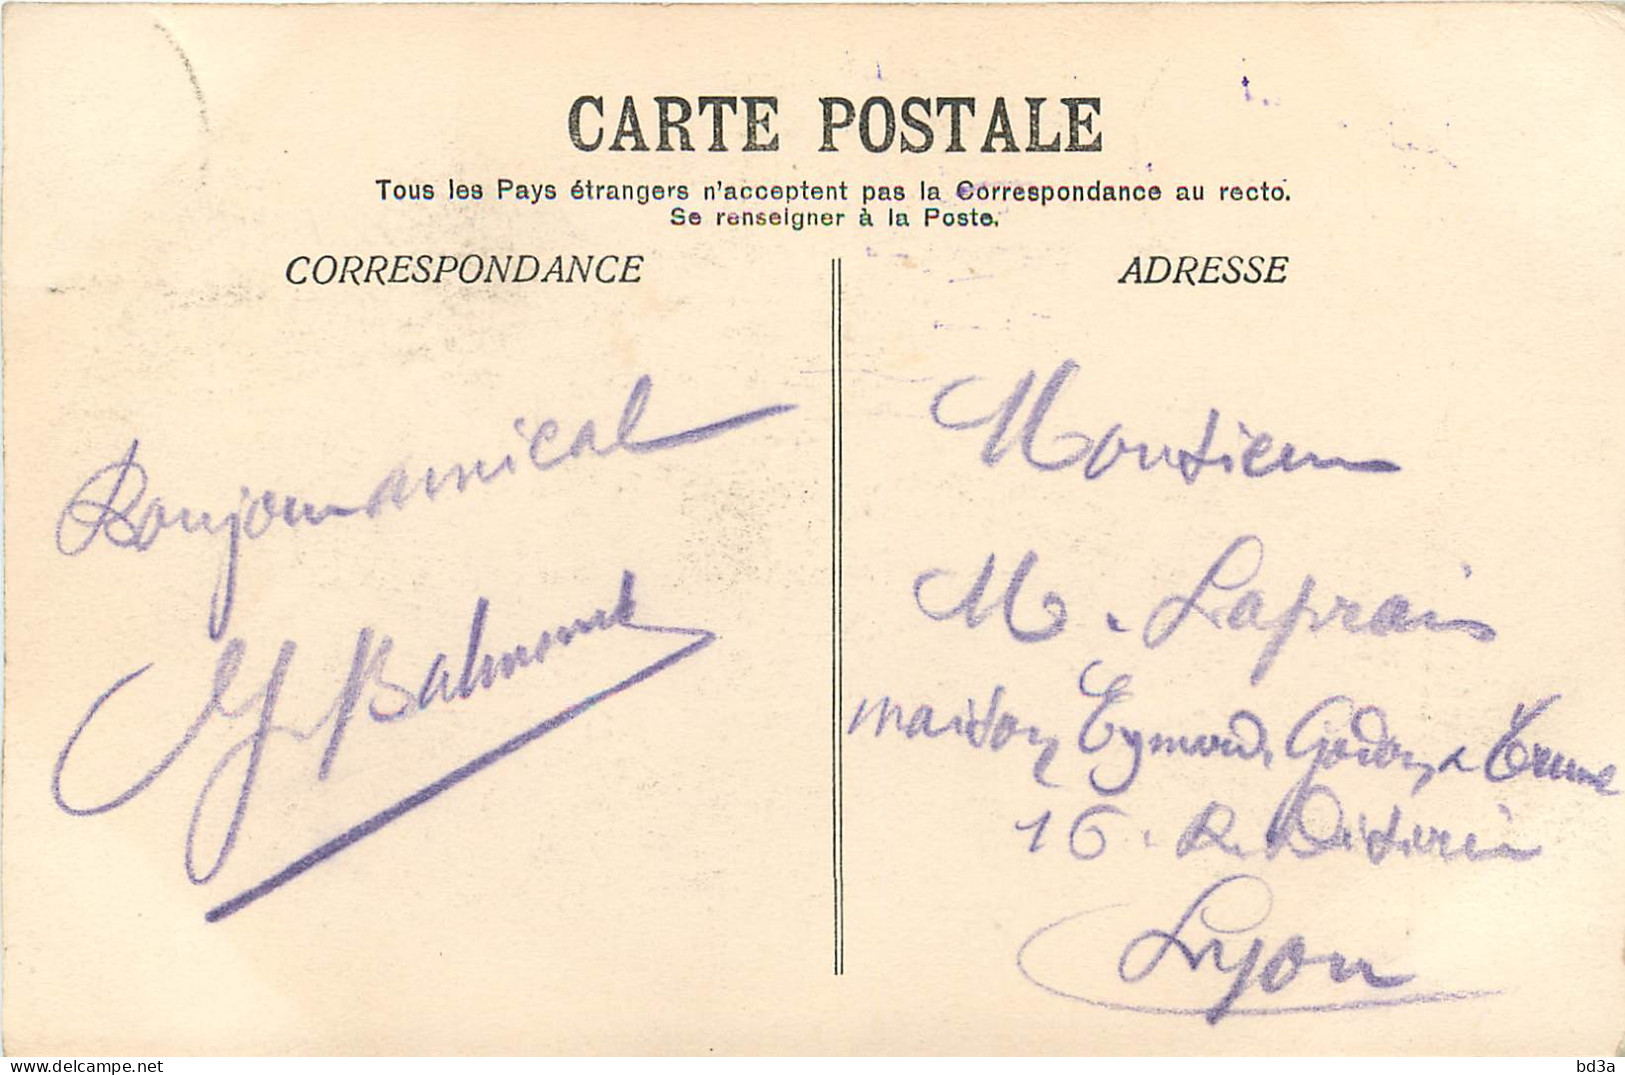 CARTE POSTALE
Tous les Pays étrangers n'acceptent pas la Correspondance au recto.
Se renseigner à la Poste.
CORRESPONDANCE
Bonjour amical
Balmont
ADRESSE
Monsieur
M. Laprais
maison Eymard, Godon &
16. R. Désirée
Lyon
delcampe.net
bd3a